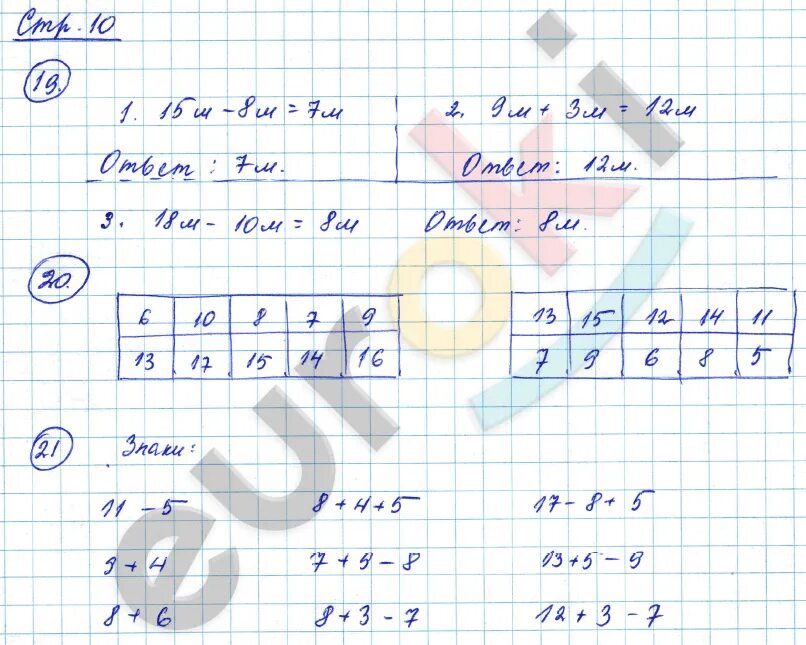 Стр. 10
19.
1. 15м - 8м = 7м
Ответ: 7м.
2. 9м + 3м = 12м
Ответ: 12м.
3. 18м - 10м = 8м Ответ: 8м.
20.
6 10 8 7 9
13 17 15 14 16
13 15 12 14 11
7 9 6 8 5
21 Знаки:
11 - 5 8 + 4 + 5 17 - 8 + 5
9 + 4 7 + 9 - 8 13 + 5 - 9
8 + 6 8 + 3 - 7 12 + 3 - 7
euroki